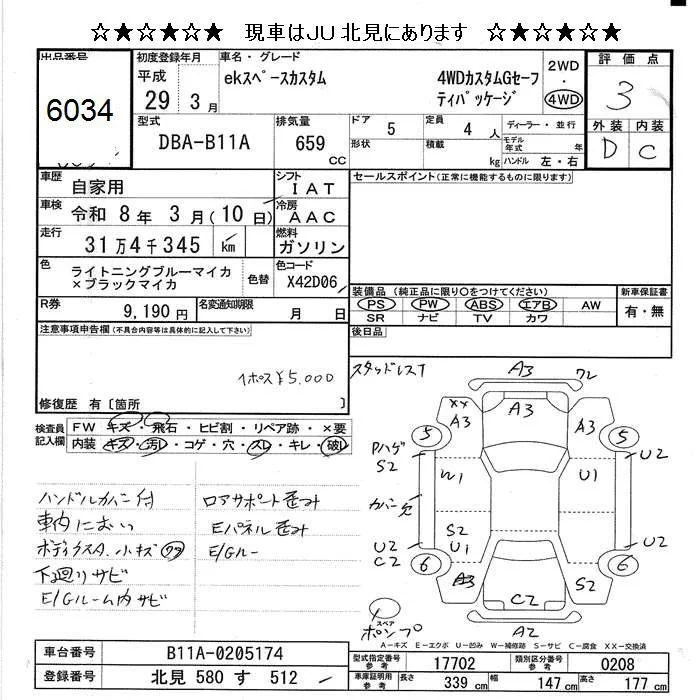 ☆★☆★☆★☆ 現車はJU北見にあります ☆★☆★☆★☆
出品番号
6034
初度登録年月
平成
29 3 月
車名・グレード
ekスペースカスタム 4WDカスタムGセーフ
ティパッケージ
2WD
・
4WD
評価点
3
外装 内装
D C
型式
DBA-B11A
排気量
659
CC
ドア 5
形状
定員 4 人
積載 kg
ディーラー・並行
モデル年式 年
ハンドル 左・右
車歴
自家用
シフト
IAT
車検
令和 8年 3月(10日)
冷房
AAC
走行
31万4千345 km
燃料
ガソリン
色
ライトニングブルーマイカ
×ブラックマイカ
色替
色コード
X42D06
R券
9,190円
名変通知期限
月 日
セールスポイント(正常に機能するものに限ります)
装備品(純正品に限り○をつけてください)
PS PW ABS エアB AW
SR ナビ TV カワ
新車保証書
有・無
後日品
注意事項申告欄(不具合内容等は具体的に記入して下さい)
¥5,000
修復歴 有〔箇所 〕
検査員
記入欄
FW キズ・飛石・ヒビ割・リペア跡・×要
内装 キズ・汚れ・コゲ・穴・スレ・キレ・破レ
ハンドルカバー付
車内におい
ボディクスミ 小キズ ワフ
下廻りサビ
E/Gルーム内サビ
ロアサポート歪み
Eパネル歪み
E/Gルー
A3 ワレ
A3
XX
A3
A3
5
5
Pハゲ
S2
W1
U1
U2
カバー欠
S2
U1
U2
C2
U2
6
6
A3
S2
C2
A2
スペア
ポンプ
A-キズ E-エクボ U-凹み W-補修跡 S-サビ C-腐食 XX-交換済
車台番号
B11A-0205174
登録番号
北見 580 す 512
型式指定番号
参考
17702
類別区分番号
参考
0208
車庫証明用
参考
長さ 339 cm
幅 147 cm
高さ 177 cm